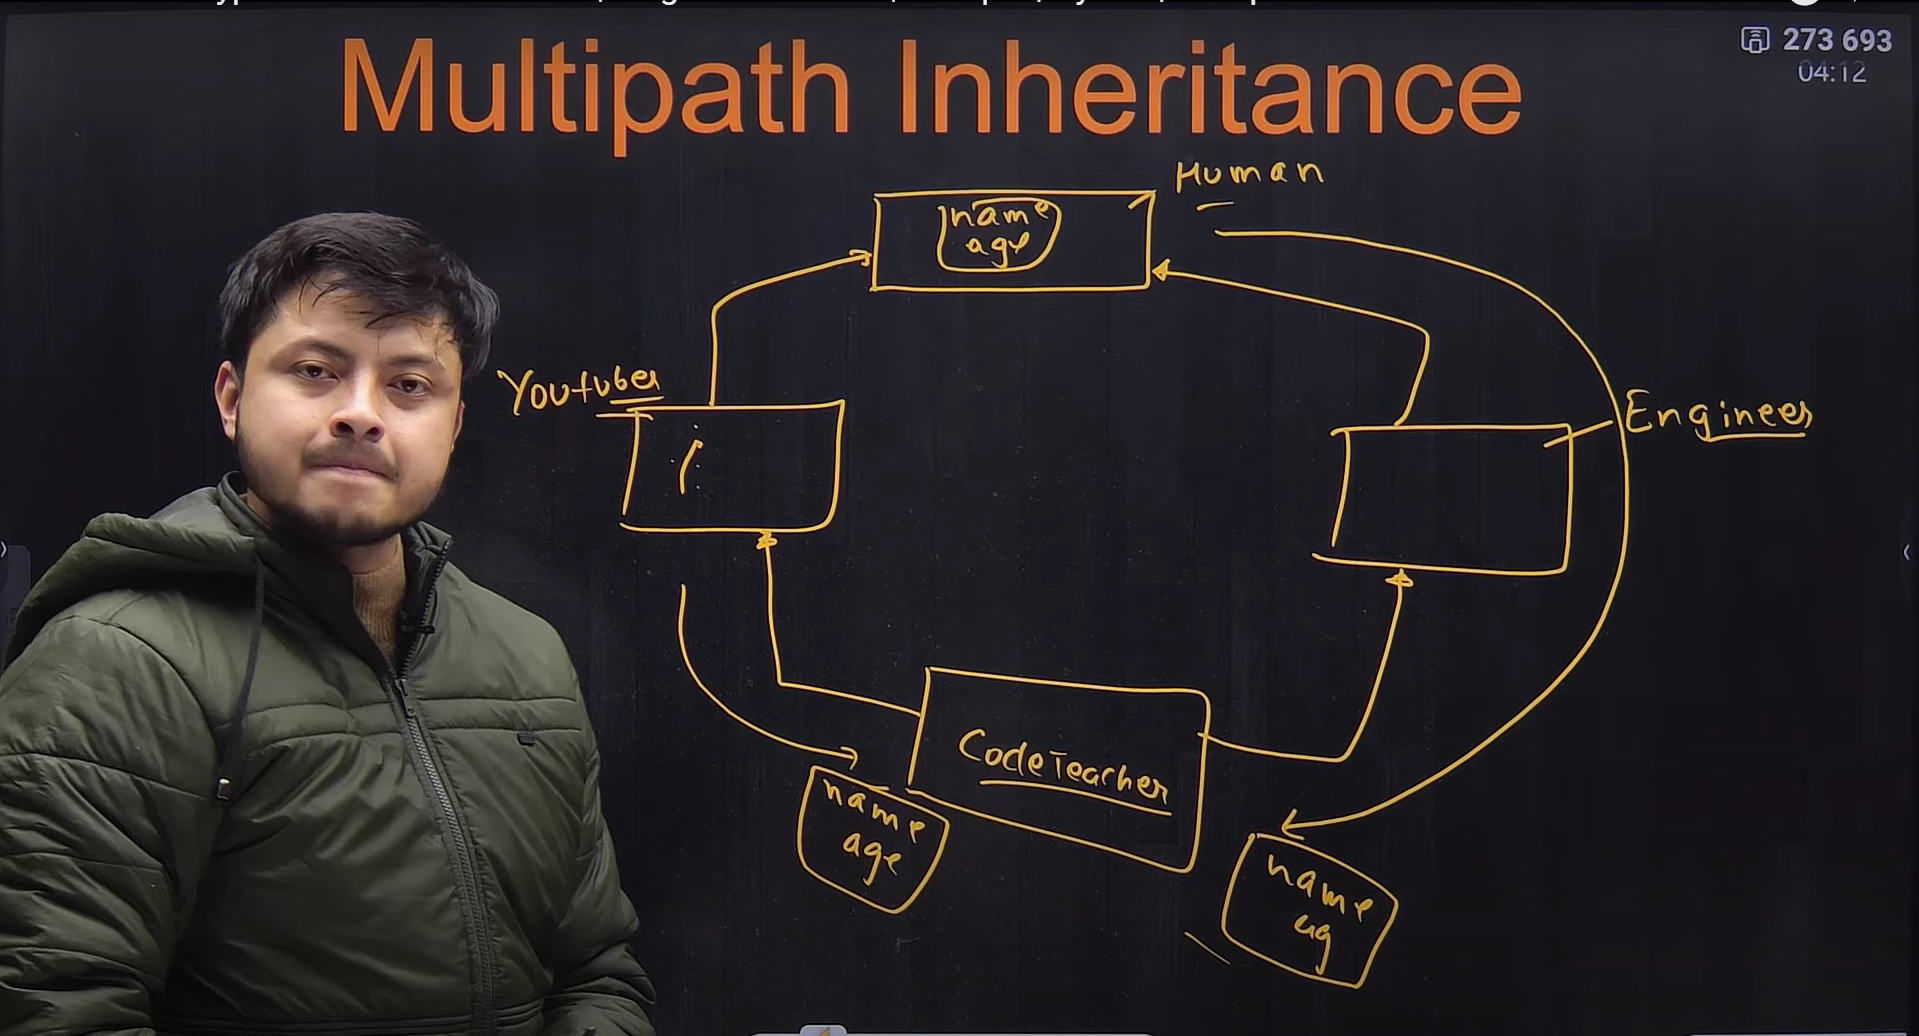 273 693
04:12
Multipath Inheritance
Human
name
age
Youtuber
Engineer
CodeTeacher
name
age
name
ag